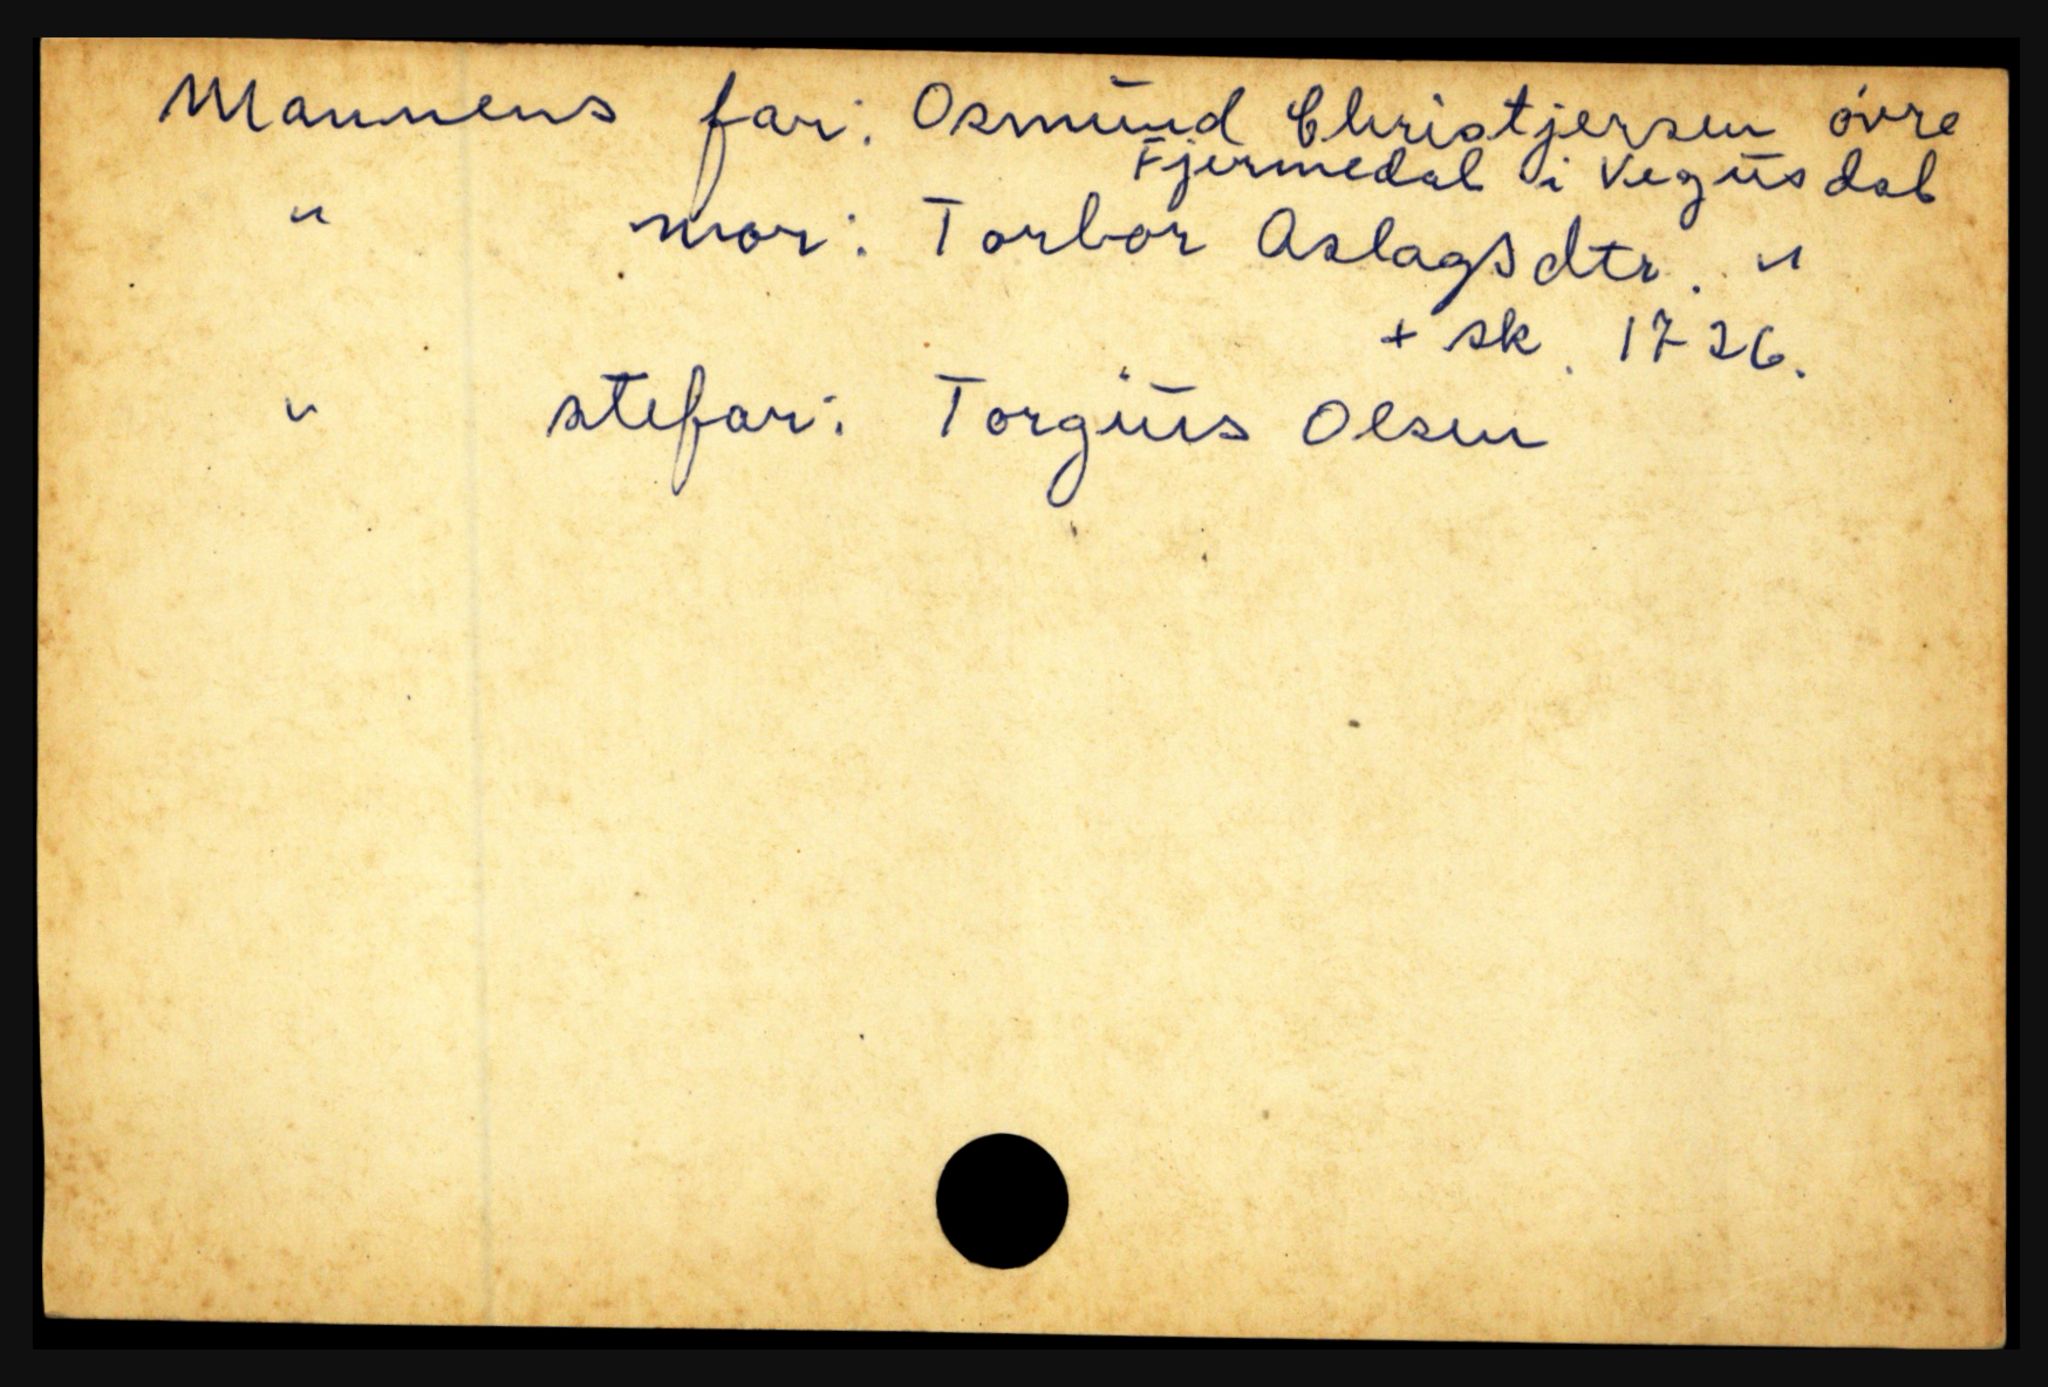 Mannens far: Osmund Christjersen øvre
Fjermedal i Vegusdal
" mor: Torbor Aslagsdtr. "
+ sk. 1726.
" stefar: Torgus Olsen